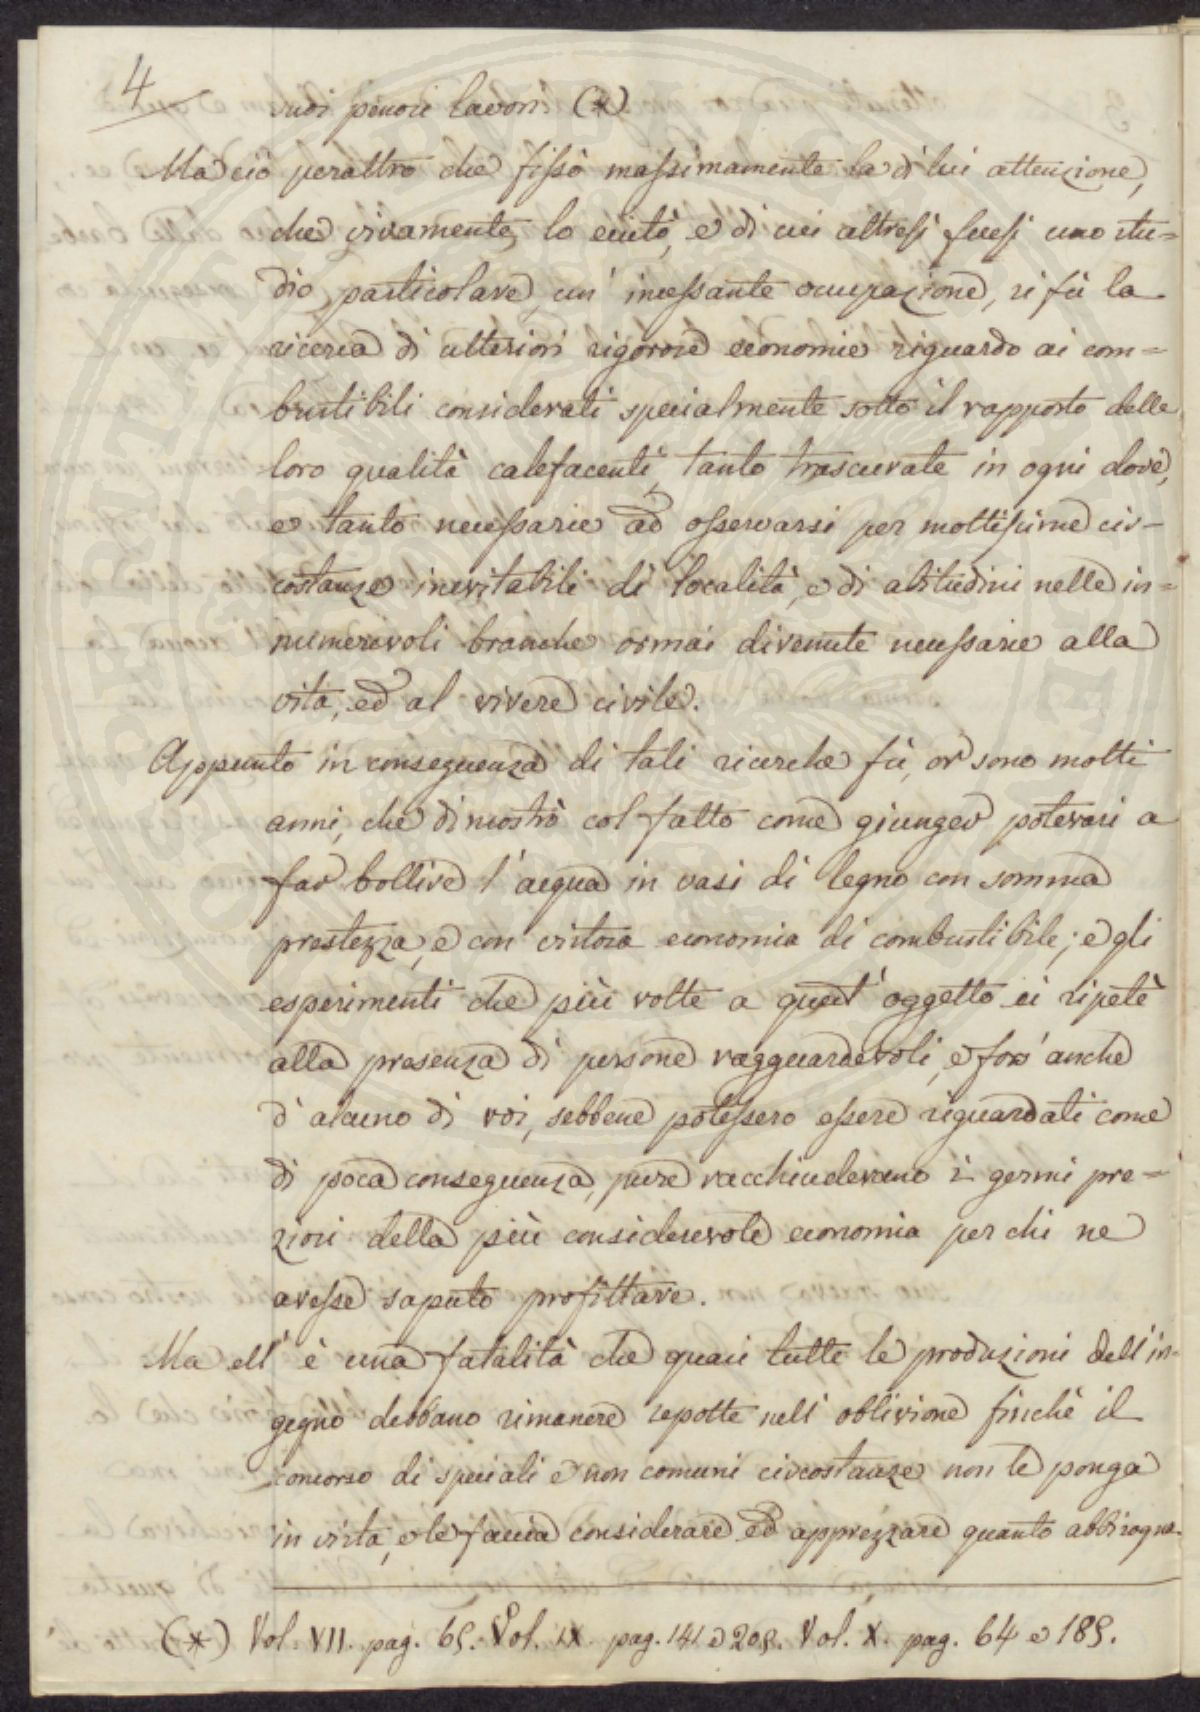 4
suoi penosi lavori. (*)
Ma ciò peraltro che fissò massimamente la di lui attenzione,
che vivamente lo eccitò, e di cui altresì fecesi uno stu=
dio particolare, un' incessante occupazione, si fù la
ricerca di ulteriori rigorose economie riguardo ai com=
bustibili considerati specialmente sotto il rapporto delle
loro qualità calefacenti, tanto trascurate in ogni dove,
e tanto necessarie ad osservarsi per moltissime cir=
costanze inevitabili di località, e di abitudini nelle in=
numerevoli branche ormai divenute necessarie alla
vita, ed al vivere civile.
Appunto in conseguenza di tali ricerche fù, or sono molti
anni, che dimostrò col fatto come giunger potevasi a
far bollire l'acqua in vasi di legno con somma
prestezza, e con vistosa economia di combustibile; e gli
esperimenti che più volte a quest' oggetto ei ripetè
alla presenza di persone ragguardevoli, e fors' anche
d' alcuno di voi, sebbene potessero essere riguardati come
di poca conseguenza, pure racchiudevano i germi pre=
ziosi della più considerevole economia per chi ne
avesse saputo profittare.
Ma ell' è una fatalità che quasi tutte le produzioni dell' in=
gegno debbano rimanere sepolte nell' oblivione finchè il
concorso di speciali e non comuni circostanze non le ponga
in vista, e le faccia considerare ed apprezzare quanto abbisogna.
(*) Vol. VII. pag. 65. Vol. IX. pag. 141. e 205. Vol. X. pag. 64 e 185.